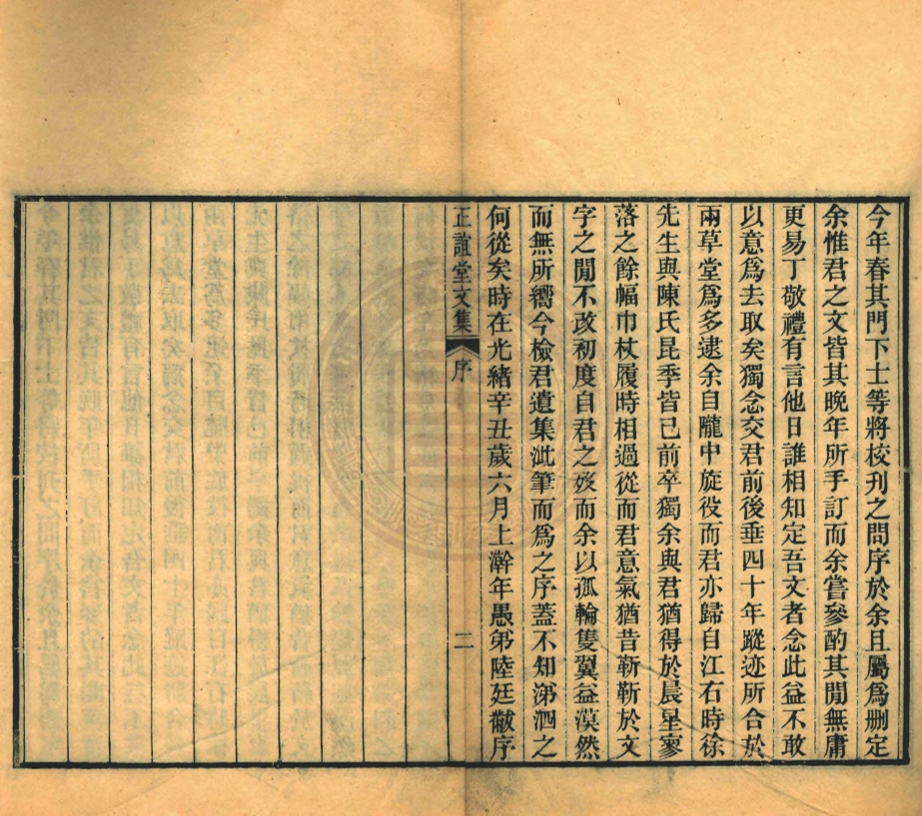 今年春其門下士等將校刊之問序於余且屬爲刪定
余惟君之文皆其晚年所手訂而余嘗參酌其閒無庸
更易丁敬禮有言他日誰相知定吾文者念此益不敢
以意爲去取矣獨念交君前後垂四十年蹤迹所合於
兩草堂爲多逮余自隴中旋役而君亦歸自江右時徐
先生與陳氏昆季皆已前卒獨余與君猶得於晨星寥
落之餘幅巾杖履時相過從而君意氣猶昔斬斬於文
字之閒不改初度自君之歿而余以孤輪隻翼益漠然
而無所嚮今檢君遺集泚筆而爲之序蓋不知涕泗之
何從矣時在光緒辛丑歲六月上澣年愚弟陸廷黻序
正誼堂文集 序 二